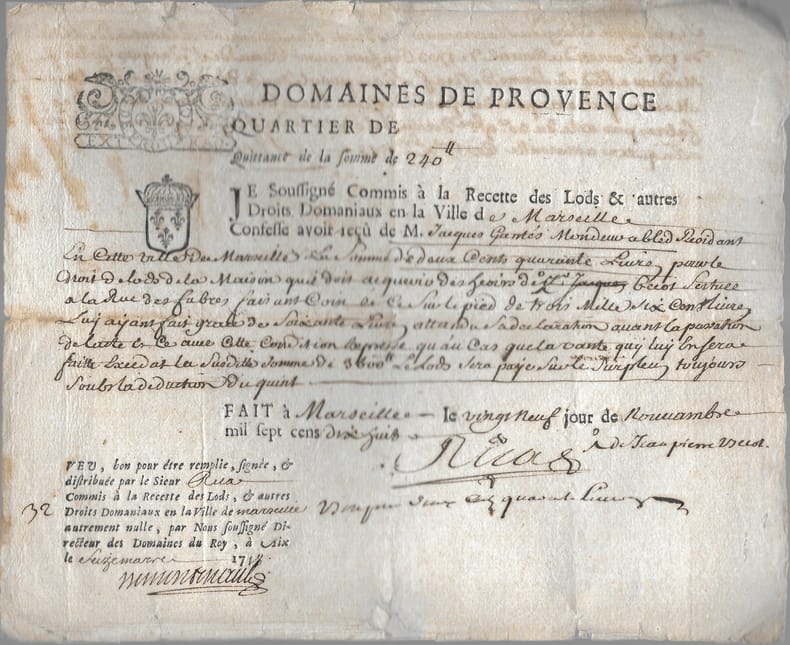 EXTRORDIN
DOMAINES DE PROVENCE
QUARTIER DE
Quittance de la somme de 240ᵗᵗ
JE Soussigné Commis à la Recette des Lods & autres
Droits Domaniaux en la Ville de Marseille
Confesse avoir reçû de M. Jacques Gantés Residant
En Cette ville de Marseille La Somme de deux Cents quarante Livres, pour le
droit de lods de la Maison qui doit acquerir des hoirs de Jacques becot Scituée
a la Rue des fabres faisant Coin Sur le pied de trois Mille Six Cent livres
Luy ayant fait grace de Soixante Livres, attandu Sa declaration avant la passation
de lacte & Ce avec Cette Condition Expresse qu'au Cas que la vante quy luy En sera
faitte Excedat la Susditte Somme de 3600ᵗᵗ Le Lods Sera payé Sur le Surpleu, toujours
Soubs la deduction du quint
FAIT à Marseille le vingt Neuf jour de Nouvambre
mil sept cens dix huit
de Jean pierre Becot
Rica
VEU, bon pour être remplie, signée, &
distribuée par le Sieur Rica
Commis à la Recette des Lods, & autres
32 Droits Domaniaux en la Ville de marseille Bon pour deux Cents quarante Livres
autrement nulle, par Nous soussigné Di-
recteur des Domaines du Roy, à Aix
le Seize mars 171